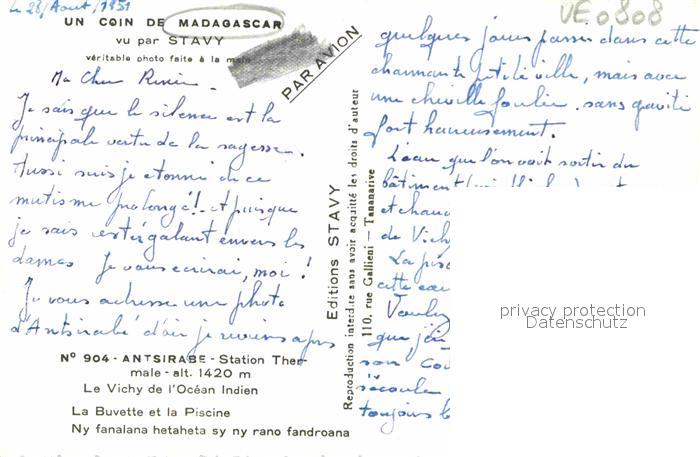 Le 28/Août/1951
UN COIN DE MADAGASCAR
vu par STAVY
véritable photo faite à la main
PAR AVION
Ma Chère
Je sais que le silence est la
principale vertu de la sagesse.
Aussi suis-je étonné de ce
mutisme prolongé! et puisque
je sais être galant envers les
dames je vous écrirai, moi!
Je vous adresse une photo
d'Antsirabé d'où je reviens après
N° 904 - ANTSIRABE - Station Ther-
male - alt. 1420 m
Le Vichy de l'Océan Indien
La Buvette et la Piscine
Ny fanalana hetaheta sy ny rano fandroana
Editions STAVY
Reproduction interdite sans avoir acquitté les droits d'auteur
110, rue Gallieni — Tananarive
VE0808
quelques jours passés dans cette
charmante petite ville, mais avec
une cheville foulée. sans gravité
fort heureusement.
L'eau que l'on voit sortir du
bâtiment
et chau
de Vichy
La pisc
cette eau
Voulez
que j'ai
son
s'écoule
toujours
privacy protection
Datenschutz